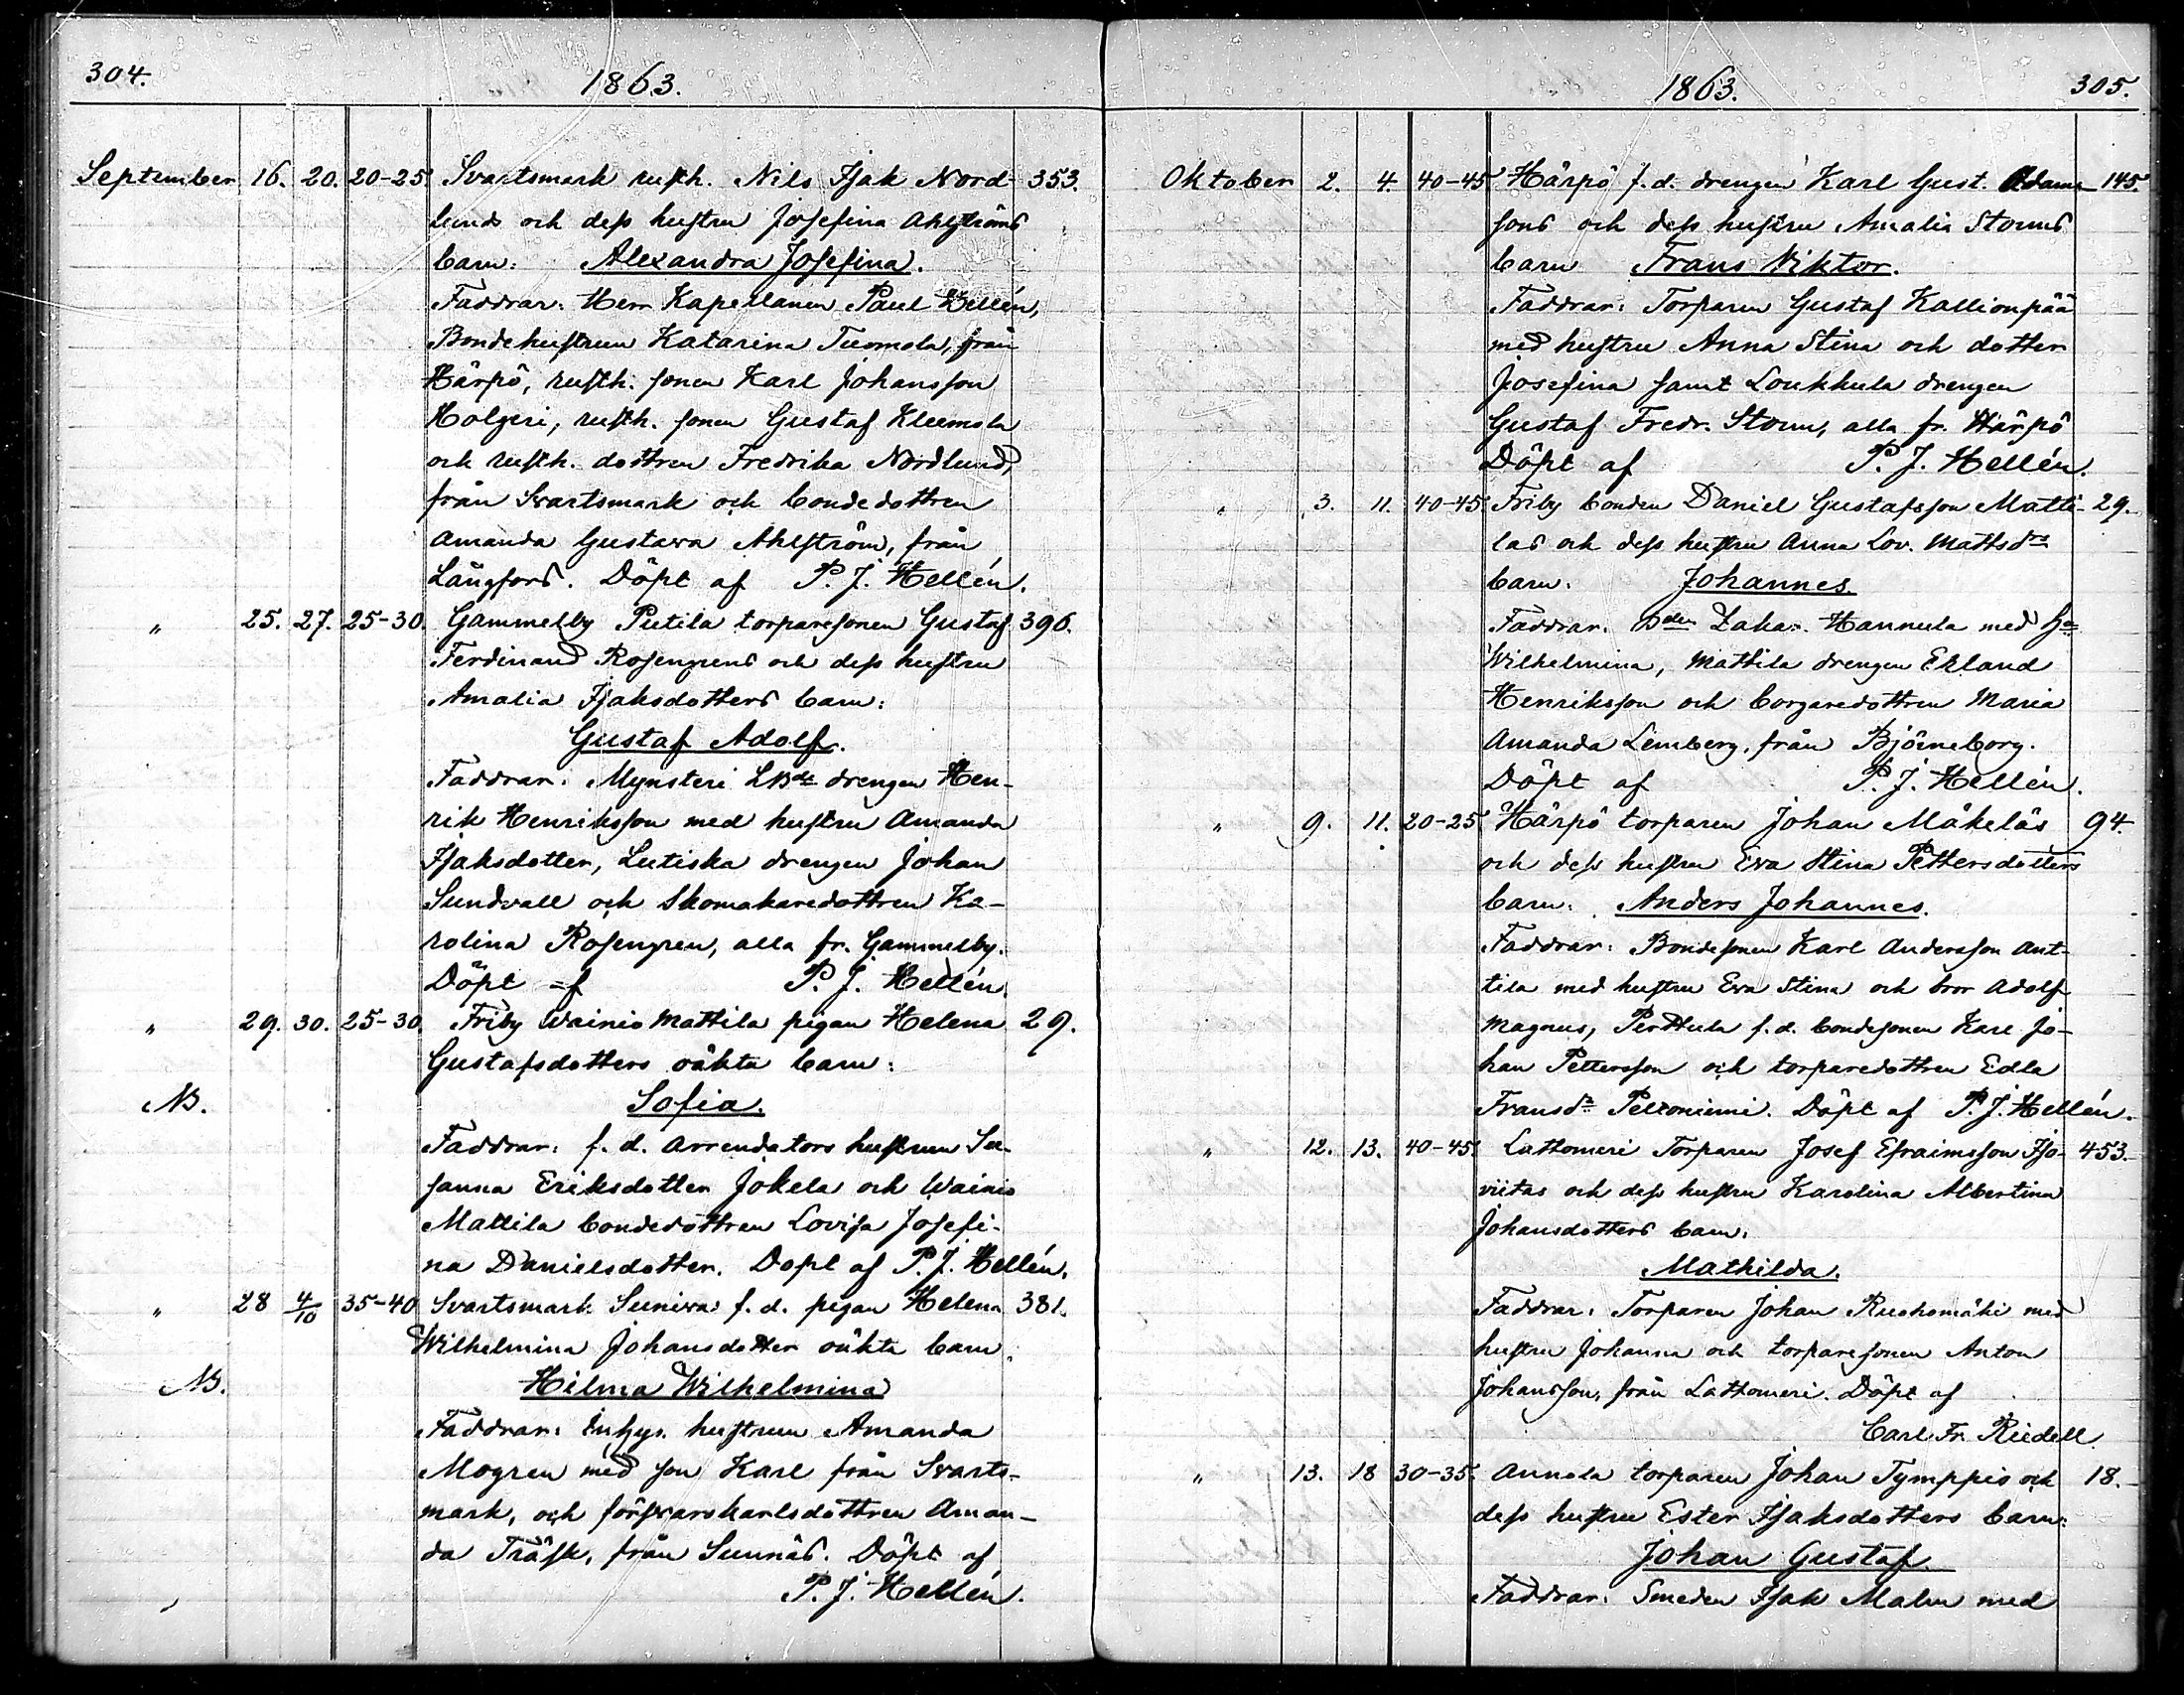 304.
1863.
September 16. 20. 20-25 Svartsmark rusth. Nils Isak Nord- 353.
lunds och dess hustru Josefina Ahlströms
barn: Alexandra Josefina.
Faddrar: Herr Kapellanen Paul Hellén,
Bondehustrun Katarina Tuomola, från
Härpö, rusth. sonen Karl Johansson
Holgeri, rusth. sonen Gustaf Kleemola
och rusth. dottren Fredrika Nordlund,
från Svartsmark och bondedottren
Amanda Gustava Ahlström, från
Långfors. Döpt af P. J. Hellén.
" 25. 27. 25-30. Gammelby Putila torparesonen Gustaf 396.
Ferdinand Rosengrens och dess hustru
Amalia Isaksdotters barn:
Gustaf Adolf.
Faddrar: Mynsteri drengen Hen-
rik Henriksson med hustru Amanda
Isaksdotter, Lutiska drengen Johan
Sundvall och Skomakaredottren Ka-
rolina Rosengren, alla fr. Gammelby.
Döpt af P. J. Hellén.
" 29. 30. 25-30. Friby Wainio Mattila pigan Helena 29.
Gustafsdotters oäkta barn:
NB. Sofia.
Faddrar: f. d. Arrendators hustrun Su-
sanna Eriksdotter Jokela och Wainio
Mattila bondedottren Lovisa Josefi-
na Danielsdotter. Döpt af P. J. Hellén.
" 28 4/10 35-40 Svartsmark Suniva f. d. pigan Helena 381.
Wilhelmina Johansdotter oäkta barn:
NB. Hilma Wilhelmina
Faddrar: Inhys. hustrun Amanda
Mogren med son Karl från Svarts-
mark, och försvarskarlsdottren Aman-
da Träsk, från Sunnäs. Döpt af
P. J. Hellén.
1863.
305.
Oktober 2. 4. 40-45 Härpö f. d. drengen Karl Gust. Adams- 145.
sons och dess hustru Amalia Storms
barn Frans Viktor.
Faddrar: Torparen Gustaf Kallionpää
med hustru Anna Stina och dotter
Josefina samt Loukkula drengen
Gustaf Fredr. Storm, alla fr. Härpö
Döpt af P. J. Hellén.
" 3. 11. 40-45 Friby bonden Daniel Gustafsson Matti- 29.
las och dess hustru Anna Lov. Mattsdrs
barn: Johannes.
Faddrar: Bden Zakar. Hannula med Ha
Wilhelmina, Mattila drengen Erland
Henriksson och borgaredottren Maria
Amanda Lemberg, från Björneborg.
Döpt af P. J. Hellén.
" 9. 11. 20-25 Härpö torparen Johan Mäkeläs 94.
och dess hustru Eva Stina Pettersdotters
barn: Anders Johannes.
Faddrar: Bondesonen Karl Andersson Ant-
tila med hustru Eva Stina och bror Adolf
Magnus, Perttula f. d. bondesonen Karl Jo-
han Pettersson och torparedottren Edla
Fransdr Peltoniemi. Döpt af P. J. Hellén.
" 12. 13. 40-45 Lattomeri Torparen Josef Efraimsson Iso- 453.
viitas och dess hustru Karolina Albertina
Johansdotters barn:
Mathilda.
Faddrar: Torparen Johan Ruohomäki med
hustru Johanna och torparesonen Anton
Johansson, från Lattomeri. Döpt af
Carl Fr. Riedell.
" 13. 18 30-35. Annola torparen Johan Tymppis och 18.
dess hustru Ester Isaksdotters barn:
Johan Gustaf.
Faddrar: Smeden Isak Malm med